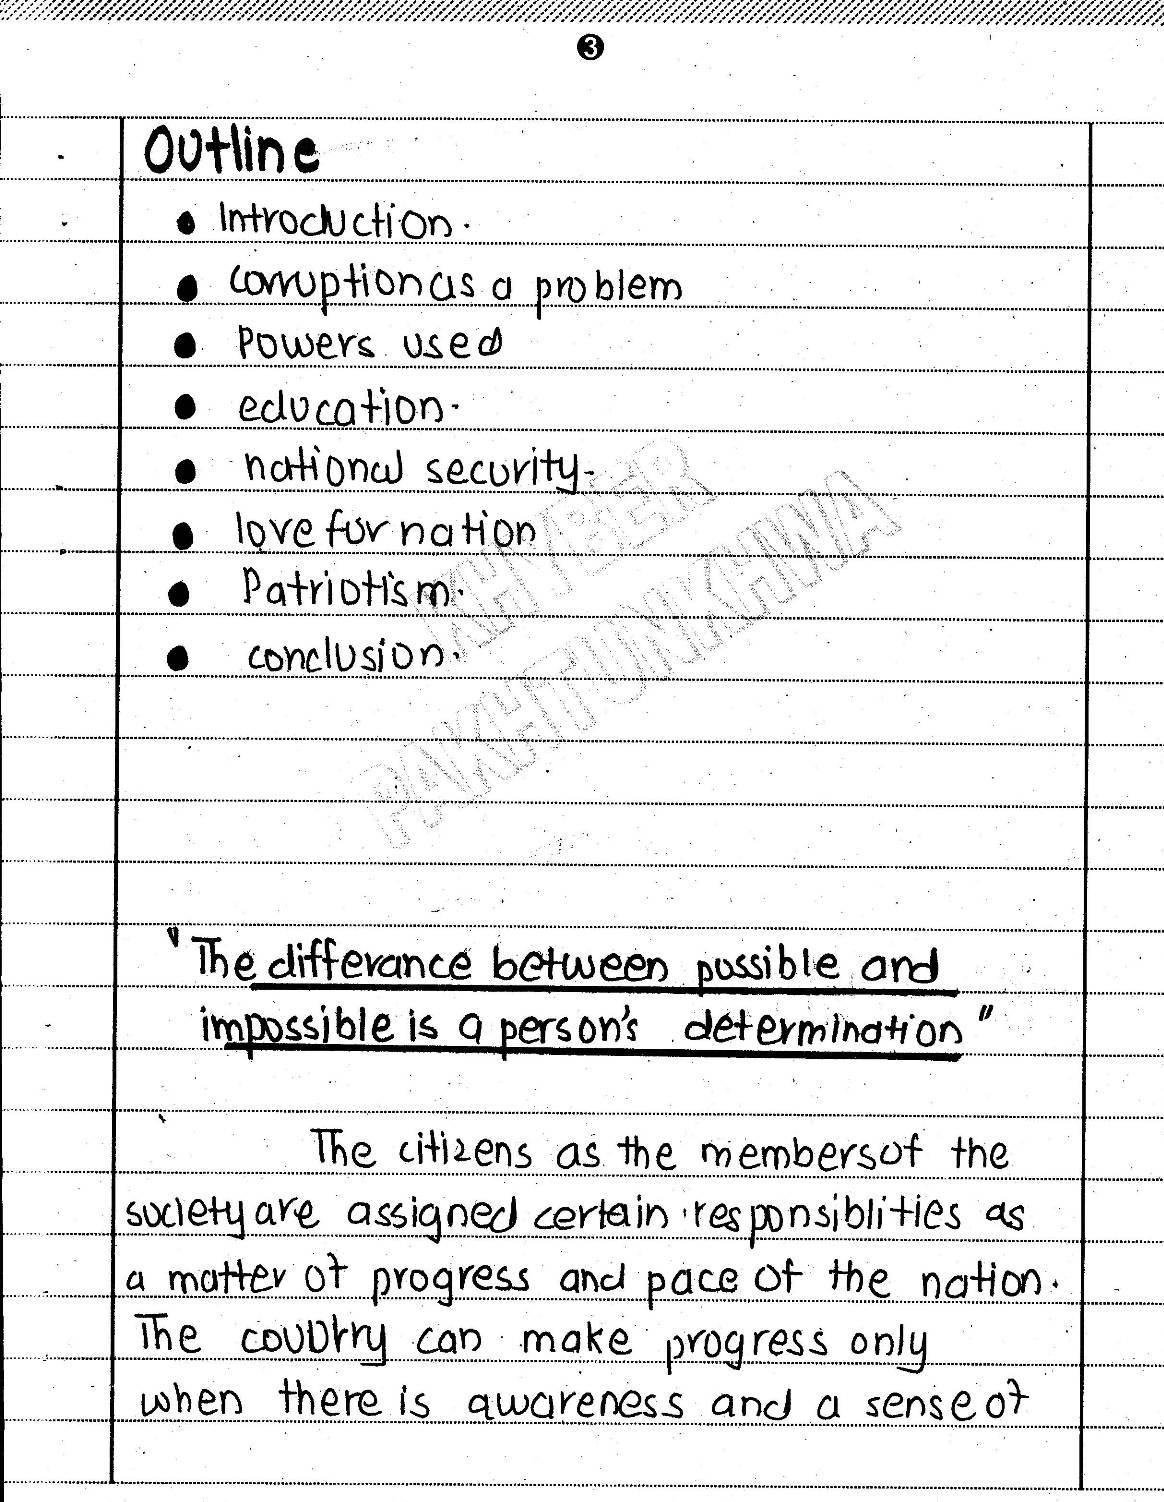 3
Outline
• Introduction.
• corruption as a problem
• Powers used
• education.
• national security-
• love for nation
• Patriotism.
• conclusion.
KHYBER
PAKHTUNKHWA
"The differance between possible and
impossible is a person's determination"
The citizens as the members of the
society are assigned certain responsiblities as
a matter of progress and pace of the nation.
The country can make progress only
when there is awareness and a sense of